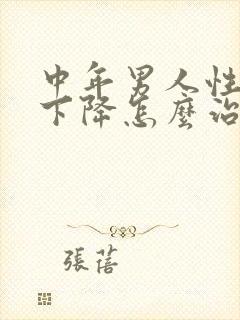 中年男人性
下降怎麼治
張蓓